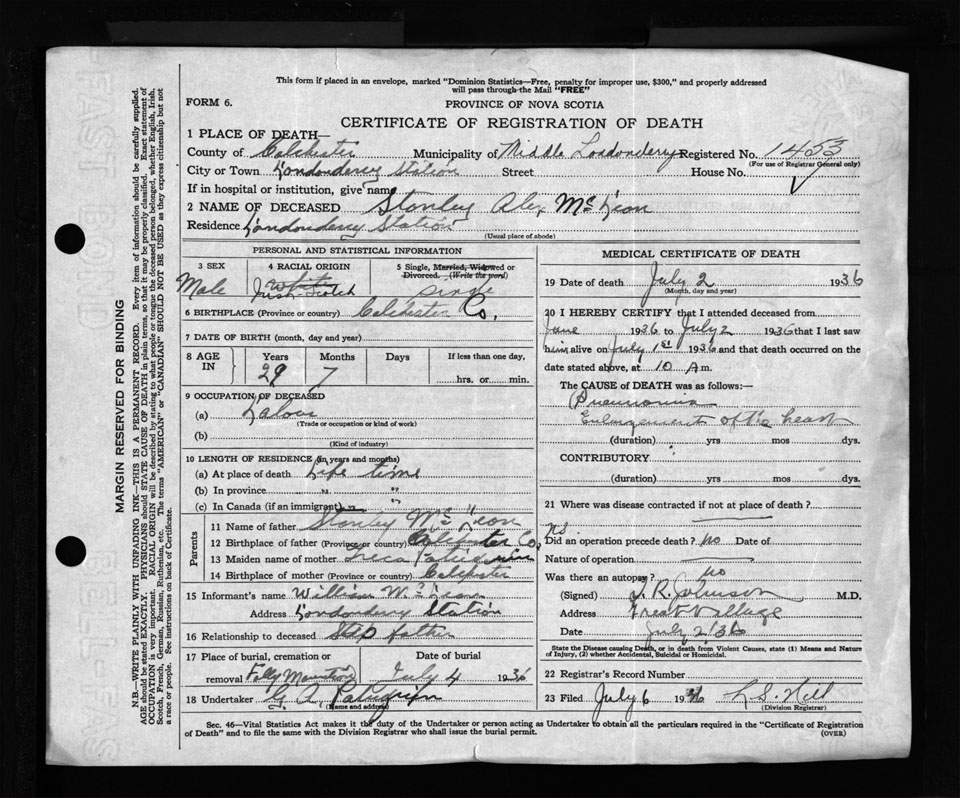 This form if placed in an envelope, marked "Dominion Statistics—Free, penalty for improper use, $300," and properly addressed
will pass through the Mail "FREE"
FORM 6.
PROVINCE OF NOVA SCOTIA
CERTIFICATE OF REGISTRATION OF DEATH
1 PLACE OF DEATH—
County of Colchester Municipality of Middle Londonderry Registered No. 1453
(For use of Registrar General only)
City or Town Londonderry Station Street House No.
If in hospital or institution, give name
2 NAME OF DECEASED Stanley Alex Mc Lean
Residence Londonderry Station
(Usual place of abode)
PERSONAL AND STATISTICAL INFORMATION
3 SEX
Male
4 RACIAL ORIGIN
White
Irish-Scotch
5 Single, Married, Widowed or
Divorced. (Write the word)
Single
6 BIRTHPLACE (Province or country) Colchester Co.
7 DATE OF BIRTH (month, day and year)
8 AGE IN
Years Months Days If less than one day,
29 7 hrs. or min.
9 OCCUPATION OF DECEASED
(a) Labour
(Trade or occupation or kind of work)
(b)
(Kind of industry)
10 LENGTH OF RESIDENCE (in years and months)
(a) At place of death Life time
(b) In province " "
(c) In Canada (if an immigrant) " "
Parents
11 Name of father Stanley Mc Lean
12 Birthplace of father (Province or country) Colchester Co.
13 Maiden name of mother
14 Birthplace of mother (Province or country) Colchester
15 Informant's name William Mc Lean
Address Londonderry Station
16 Relationship to deceased Step father
17 Place of burial, cremation or Date of burial
removal Folly Mountain July 4 1936
18 Undertaker G. A.
(Name and address)
MEDICAL CERTIFICATE OF DEATH
19 Date of death July 2 1936
(Month, day and year)
20 I HEREBY CERTIFY that I attended deceased from
June 1936 to July 2 1936 that I last saw
him alive on July 1st 1936 and that death occurred on the
date stated above, at 10 A m.
The CAUSE of DEATH was as follows:—
Pneumonia
Enlargement of the heart
(duration) yrs mos dys.
CONTRIBUTORY
(duration) yrs mos dys.
21 Where was disease contracted if not at place of death?
no
Did an operation precede death? no Date of
Nature of operation
Was there an autopsy? no
(Signed) J. R. Johnson M.D.
Address Great Village
Date July 2/36
State the Disease causing Death, or in death from Violent Causes, state (1) Means and Nature
of Injury, (2) whether Accidental, Suicidal or Homicidal.
22 Registrar's Record Number
23 Filed July 6 1936 L. S. Hill
(Division Registrar)
Sec. 46—Vital Statistics Act makes it the duty of the Undertaker or person acting as Undertaker to obtain all the particulars required in the "Certificate of Registration
of Death" and to file the same with the Division Registrar who shall issue the burial permit.
(OVER)
MARGIN RESERVED FOR BINDING
N.B.—WRITE PLAINLY WITH UNFADING INK—THIS IS A PERMANENT RECORD. Every item of information should be carefully supplied.
AGE should be stated EXACTLY. PHYSICIANS should STATE CAUSE OF DEATH in plain terms, so that it may be properly classified. Exact statement of
OCCUPATION is very important. RACIAL ORIGIN will be described by stating to what people or tongue the deceased person belonged, whether English, Irish,
Scotch, French, German, Russian, Ruthenian, etc. The terms "AMERICAN" or "CANADIAN" SHOULD NOT BE USED as they express citizenship but not
a race or people. See instructions on back of Certificate.